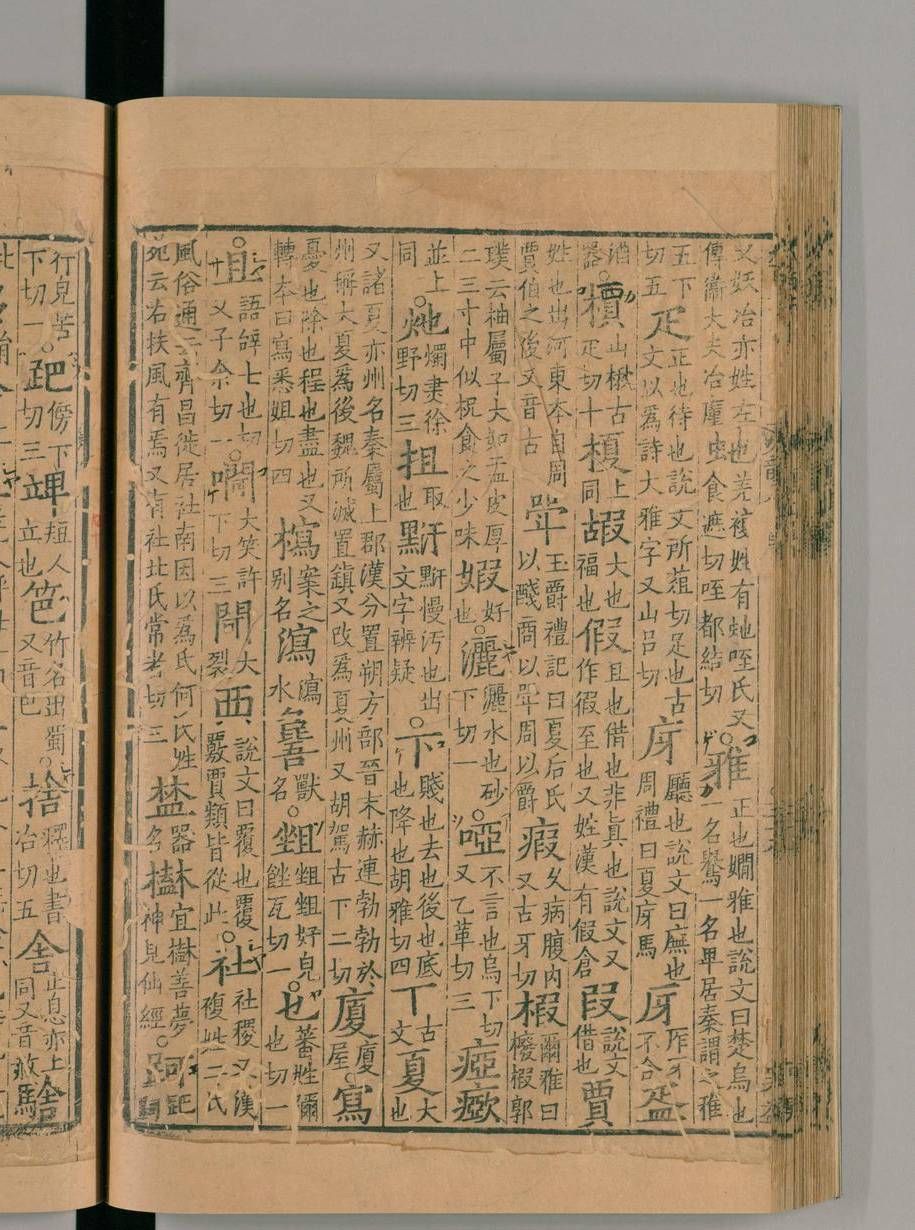 又妖冶亦姓左傳衞大夫冶廑虵羌複姓有虵咥氏又食遮切咥都結切○雅正也嫺雅也說文曰楚烏也一名鸒一名卑居秦謂之雅
五下切五疋正也待也說文所葅切足也古文以爲詩大雅字又山吕切庌廳也說文曰廡也周禮曰夏庌馬厊厏厊不合
酒器○檟山楸古疋切十榎上同嘏大也福也假且也借也非真也說文又作徦至也又姓漢有假倉叚說文借也賈
姓也出河東本自周賈伯之後又音古斝玉爵禮記曰夏后氏以醆商以斝周以爵瘕久病腹内又古牙切椵爾雅曰櫠椵郭
璞云柚屬子大如盂皮厚二三寸中似枳食之少味婽好也○灑灑水也砂下切一○啞不言也烏下切又乙革切三瘂
並上同○灺燭燼徐野切三担取也䵟慢污也出文字辨疑○下賤也去也後也底也降也胡雅切四丅古文夏大也
又諸夏亦州名秦屬上郡漢分置朔方郡晉末赫連勃勃於州稱大夏爲後魏所滅置鎮又改爲夏州又胡駕古下二切廈廈屋○寫
憂也除也程也盡也又轉本曰寫悉姐切四案之别名瀉瀉水獸名○好皃銼瓦切一○乜蕃姓彌也切一
○且語辭七也切又子余切一○㗿大笑許下切三閜大裂襾說文曰覆也覂賈類皆從此○社社稷又漢複姓二氏
風俗通云齊昌徙居社南因以爲氏何氏姓苑云右扶風有焉又有社北氏常者切三器名宜樹善夢神見仙經○跒
行皃苦下切一○跁傍下切三短人立也笆竹名出蜀又音巴○捨釋也書冶切五舍止息亦上同又音赦騇